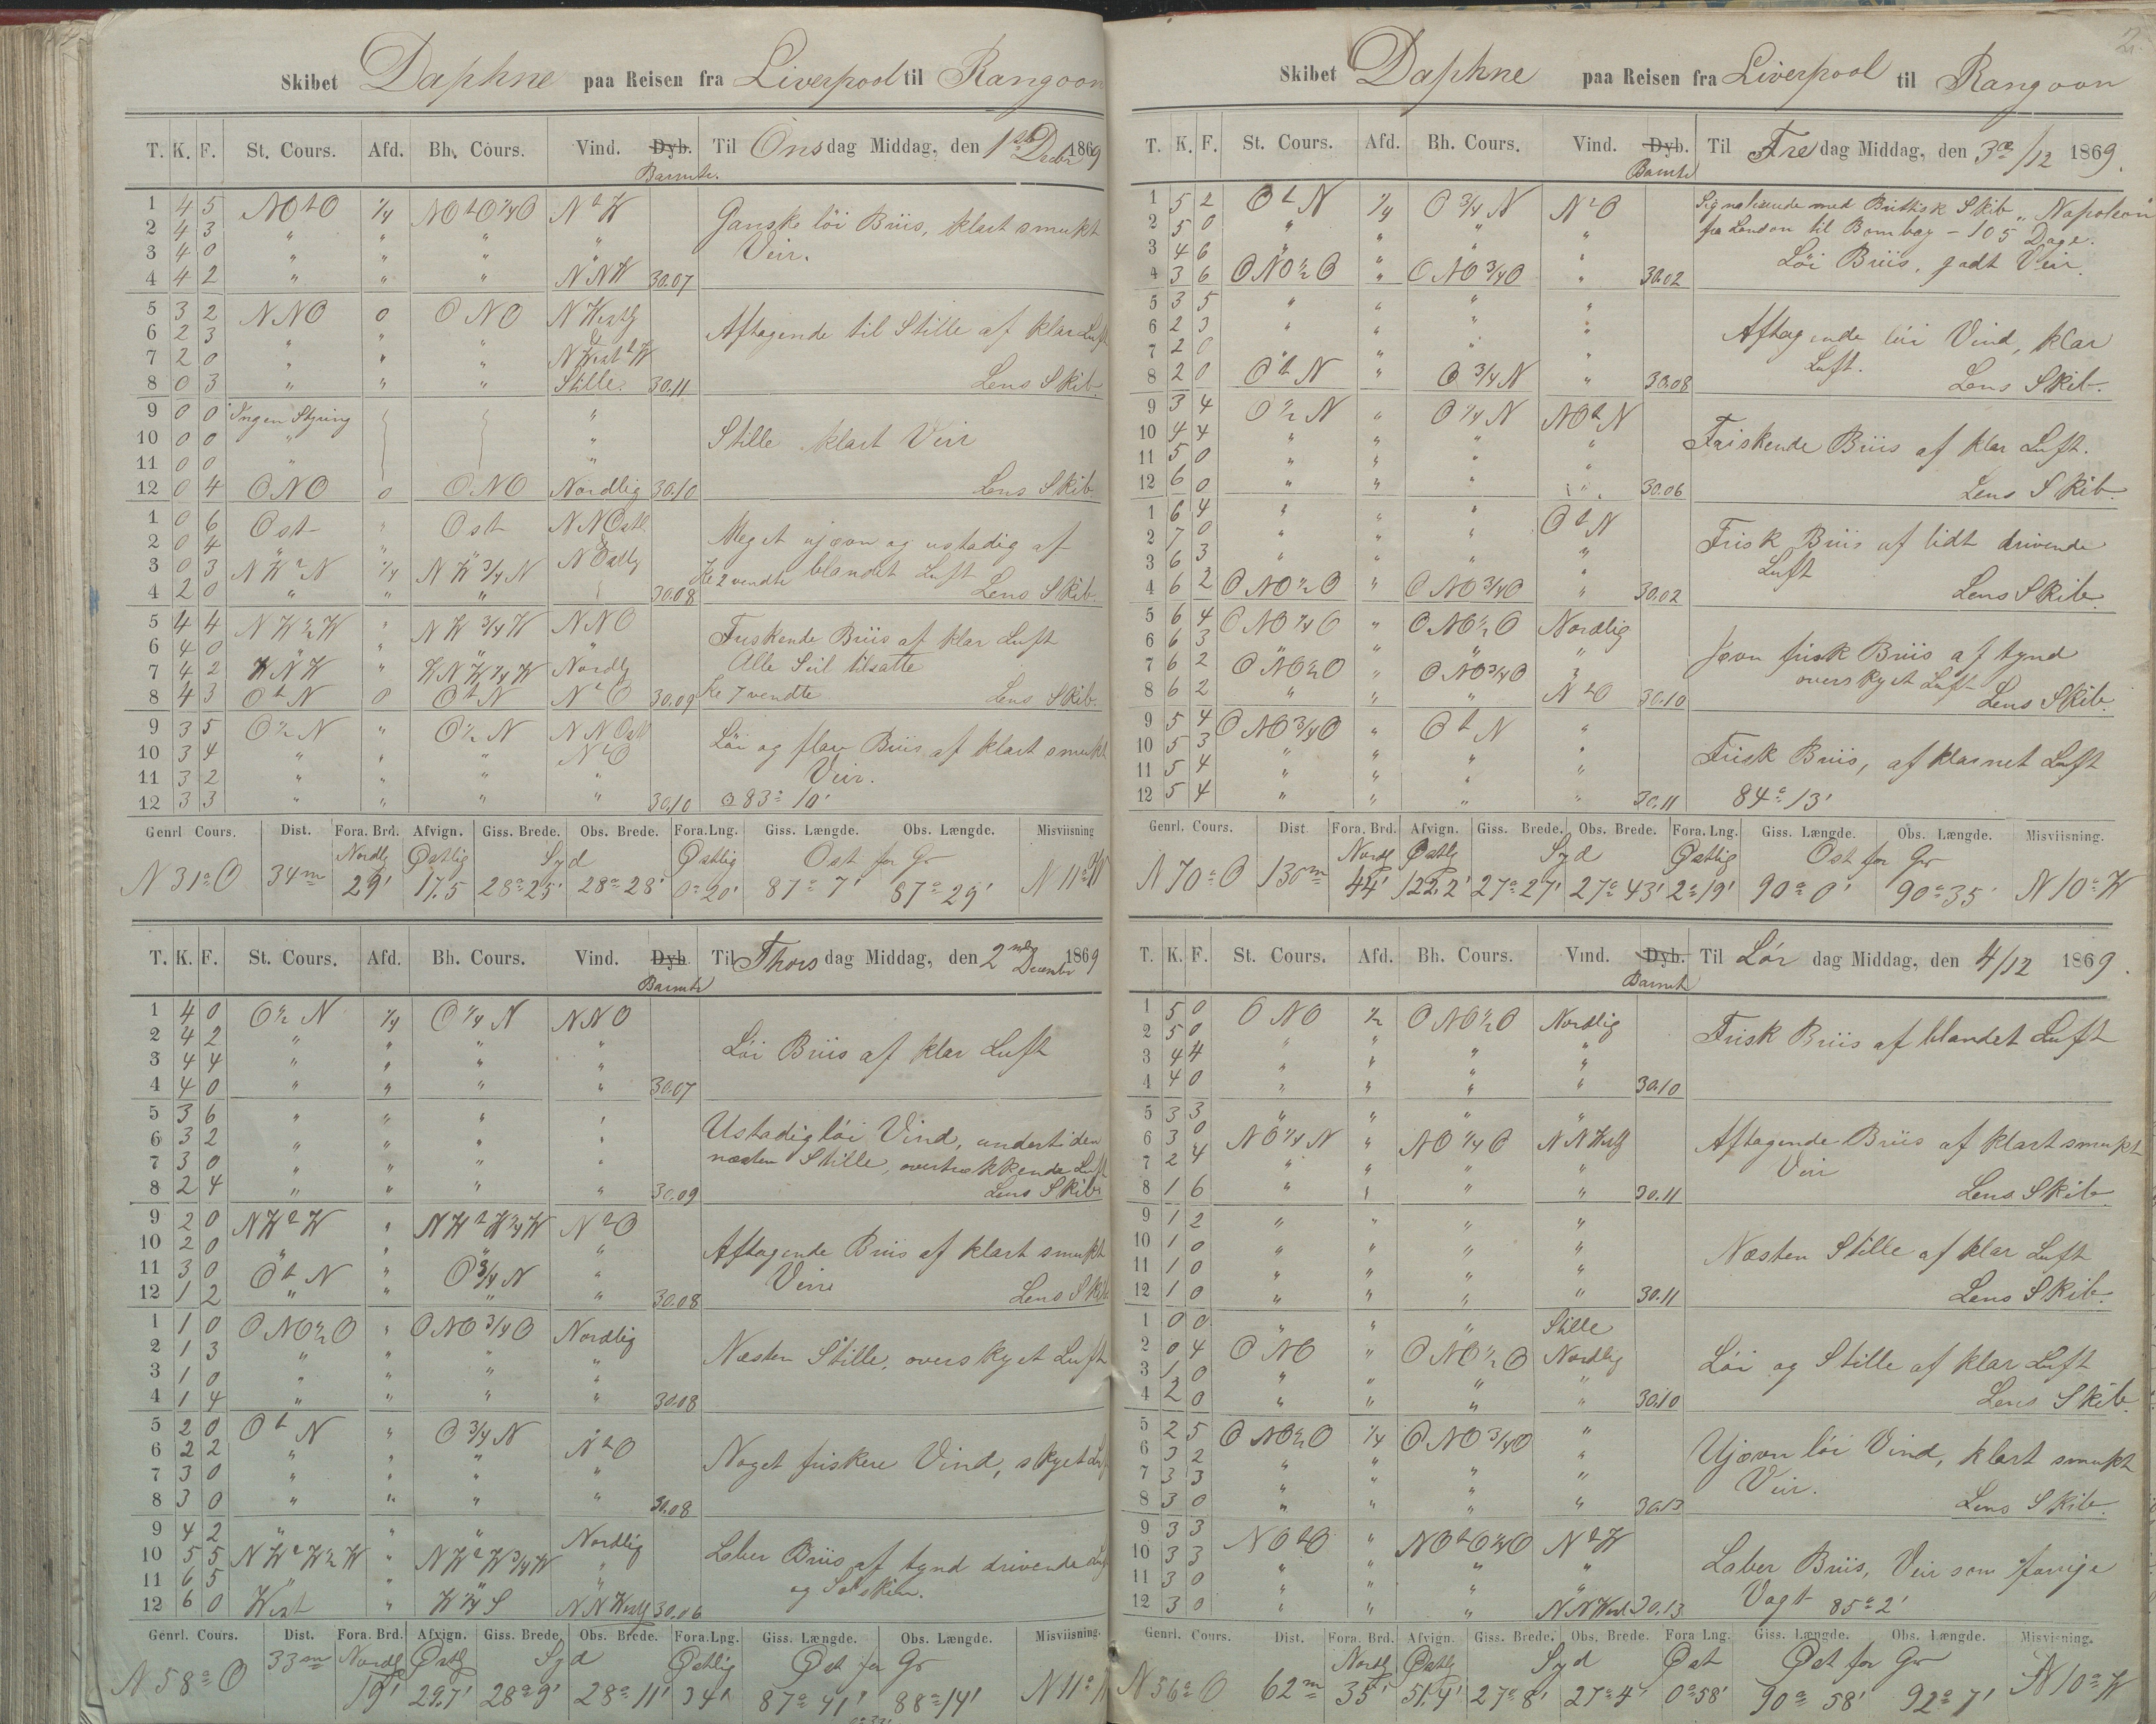 Skibet Daphne paa Reisen fra Liverpool til Rangoon
T. K. F. St. Cours. Afd. Bh. Cours. Vind. Dyb. Til Onsdag Middag, den 1ste Decbr 1869
Barmtr.
1 4 5 NOtO 1/4 NOtO1/4O NtW Ganske löi Briis, klart smukt
2 4 3 " " " " Veir.
3 4 0 " " "
4 4 2 " " " NNW 30.07
5 3 2 NNO 0 ONO N Westlg
6 2 3 " " " & Aftagende til Stille af klar Luft
7 2 0 " " " N West t W
8 0 3 " " " Stille. 30.11 Lens Skib.
9 0 0 Ingen Styring "
10 0 0 " " Stille klart Veir
11 0 0 " "
12 0 4 ONO 0 ONO Nordlig 30.10 Lens Skib
1 0 6 Ost " Ost NNOstl
2 0 4 " " " & Meget ujævn og ustadig af
3 0 3 NWtN 1/4 NW3/4N NOstlg Kl 2 vendte blandet Luft
4 2 0 " " " 30.08 Lens Skib.
5 4 4 NW1/2W " NW3/4W NNO Friskende Briis af klar Luft
6 4 0 " " " " Alle Seil tilsatte
7 4 2 WNW " WNW1/4W Nordlg
8 4 3 OtN 0 OtN NtO 30.09 Kl 7 vendte Lens Skib.
9 3 5 O1/2N " O1/2N NNOst Löi og flau Briis af klart smukt
10 3 4 " " " NtO Veir.
11 3 2 " " " "
12 3 3 " " " " 30.10 83° 10'
Genrl Cours. Dist. Fora. Brd. Afvign. Giss. Brede. Obs. Brede. Fora.Lng. Giss. Længde. Obs. Længde. Misviisning
Nordlg Østlig Syd Østlig Ost for Gr
N 31° O 34m 29' 17.5 28° 25' 28° 28' 0° 20' 87° 7' 87° 29' N 11° W
T. K. F. St. Cours. Afd. Bh. Cours. Vind. Dyb Til Thorsdag Middag, den 2nd December 1869
Barmtr
1 4 0 O1/2 N 1/4 O1/4 N NNO
2 4 2 " " " " Löi Briis af klar Luft
3 4 4 " " " "
4 4 0 " " " " 30.07
5 3 6 " " " " Ustadig löi Vind, undertiden
6 3 2 " " " " næsten Stille, overtrækkende Luft
7 3 0 " " " "
8 2 4 " " " " 30.09 Lens Skib
9 2 0 NWtW " NWtW1/4W NtO
10 2 0 " " " " Aftagende Briis af klart smukt
11 3 0 OtN " O3/4N " Veir
12 1 2 " " " " 30.08 Lens Skib
1 1 0 ONO1/2O " ONO3/4O Nordlig
2 1 3 " " " " Næsten Stille, overskyet Luft
3 1 0 " " " "
4 1 4 " " " " 30.08
5 2 0 OtN " O3/4N
6 2 2 " " " NtO Noget friskere Vind, skyet Luft
7 3 0 " " " "
8 3 0 " " " " 30.08
9 4 2 " " " Nordlig
10 5 5 NWtW1/2W " NWtW3/4W " Laber Briis af tynd drivende Luft
11 6 5 " " " " og Solskin.
12 6 0 West " W1/4S NNWestl 30.06
Genrl. Cours. Dist. Fora. Brd. Afvign. Giss. Brede. Obs. Brede. Fora.Lng. Giss. Længde. Obs. Længde. Misviisning.
Nordlg Østlg Syd Østlig Øst for Gr
N 58° O 33m 19' 29.7' 28° 9' 28° 11' 34' 87° 41' 88° 14' N 11°
Skibet Daphne paa Reisen fra Liverpool til Rangoon
T. K. F. St. Cours. Afd. Bh. Cours. Vind. Dyb. Til Fredag Middag, den 3die/12 1869.
Barmtr
1 5 2 OtN 1/4 O3/4N NtO Signaliserede med Brittisk Skib "Napoleon"
2 5 0 " " " " fra London til Bombay - 105 Dage.
3 4 6 " " " " Löi Briis, godt Veir.
4 3 6 ONO1/2O " ONO3/4O " 30.02
5 3 5 " " " "
6 2 3 " " " " Aftagende löi Vind, klar
7 2 0 " " " " Luft.
8 2 0 OtN " O3/4N " 30.08 Lens Skib.
9 3 4 O1/2N " O1/4N NOtN
10 4 4 " " " " Friskende Briis af klar Luft.
11 5 0 " " " "
12 6 0 " " " " 30.06 Lens Skib.
1 6 4 " " " OtN
2 7 0 " " " " Frisk Briis af lidt drivende
3 6 3 " " " " Luft
4 6 2 ONO1/2O " ONO3/4O " 30.02 Lens Skib.
5 6 4 ONO1/4O " ONO1/2O Nordlig
6 6 3 " " " " Jævn frisk Briis af tynd
7 6 2 ONO1/2O " ONO3/4O " overskyet Luft
8 6 2 " " " NtO 30.10 Lens Skib.
9 5 4 ONO3/4O " OtN "
10 5 3 " " " " Frisk Briis, af klarnet Luft
11 5 4 " " " "
12 5 4 " " " " 30.11 84° 13'
Genrl. Cours. Dist Fora. Brd. Afvign. Giss. Brede. Obs. Brede. Fora. Lng. Giss. Længde. Obs. Længde. Misviisning.
Nordlg Østlg Syd Østlig Ost for Gr
N 70° O 130m 44' 122.2' 27° 27' 27° 43' 2° 19' 90° 0' 90° 35' N 10° W
T. K. F. St. Cours. Afd. Bh. Cours. Vind. Dyb. Til Lørdag Middag, den 4/12 1869.
Barmtr
1 5 0 ONO 1/2 ONO1/2O Nordlig
2 5 0 " " " " Frisk Briis af blandet Luft
3 4 4 " " " "
4 4 0 " " " " 30.10
5 3 3 " " " "
6 3 0 NO1/4N " NO1/4O NNWestl Aftagende Briis af klart smukt
7 2 4 " " " " Veir
8 1 6 " " " " 30.11 Lens Skib.
9 1 2 " " " "
10 1 0 " " " " Næsten Stille af klar Luft
11 1 0 " " " "
12 1 0 " " " " 30.11 Lens Skib.
1 0 0 " " " Stille
2 0 4 ONO " ONO1/2O Nordlig Löi og Stille af klar Luft
3 1 0 " " " "
4 2 0 " " " " 30.10 Lens Skib.
5 2 5 ONO1/2O 1/4 ONO3/4O "
6 3 2 " " " " Ujævn löi Vind, klart smukt
7 3 3 " " " " Veir.
8 3 0 " " " " 30.13 Lens Skib.
9 3 3 NOtO " NOtO1/4O NtW
10 3 3 " " " " Laber Briis, Veir som forrige
11 3 0 " " " " Vagt 85° 2'
12 3 0 " " " NNWestl 30.13
Genrl. Cours. Dist. Fora. Brd. Afvign. Giss. Brede. Obs. Brede. Fora Lng. Giss. Længde. Obs. Længde. Misvisning.
Nordlg Østlg Syd Øst Øst for Gr
N 56° O 62m 35' 51.4' 27° 8' 27° 4' 0° 58' 90° 58' 92° 7' N 10° W